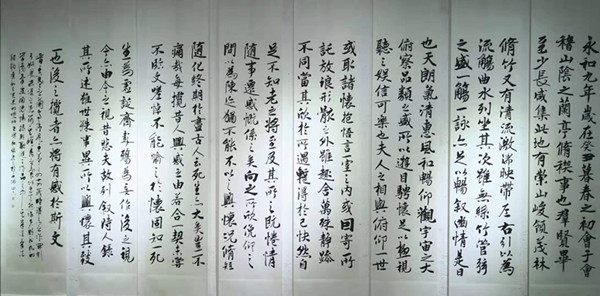 永和九年歲在癸丑暮春之初會于會
稽山陰之蘭亭脩稧事也群賢畢
至少長咸集此地有崇山峻領茂林
脩竹又有清流激湍映帶左右引以為
流觴曲水列坐其次雖無絲竹管弦
之盛一觴一詠亦足以暢叙幽情是日
也天朗氣清惠風和暢仰觀宇宙之大
俯察品類之盛所以遊目騁懷足以極視
聽之娛信可樂也夫人之相與俯仰一世
或取諸懷抱悟言一室之內或因寄所
託放浪形骸之外雖趣舍萬殊靜躁
不同當其欣於所遇暫得於己快然自
足不知老之將至及其所之既惓情
隨事遷感慨係之矣向之所欣俛仰之
間以為陳迹猶不能不以之興懷況脩短
隨化終期於盡古人云死生亦大矣豈不
痛哉每攬昔人興感之由若合一契未嘗
不臨文嗟悼不能喻之於懷固知一死
生為虛誕齊彭殤為妄作後之視
今亦由今之視昔悲夫故列叙時人錄
其所述雖世殊事異所以興懷其致
一也後之攬者亦將有感於斯文